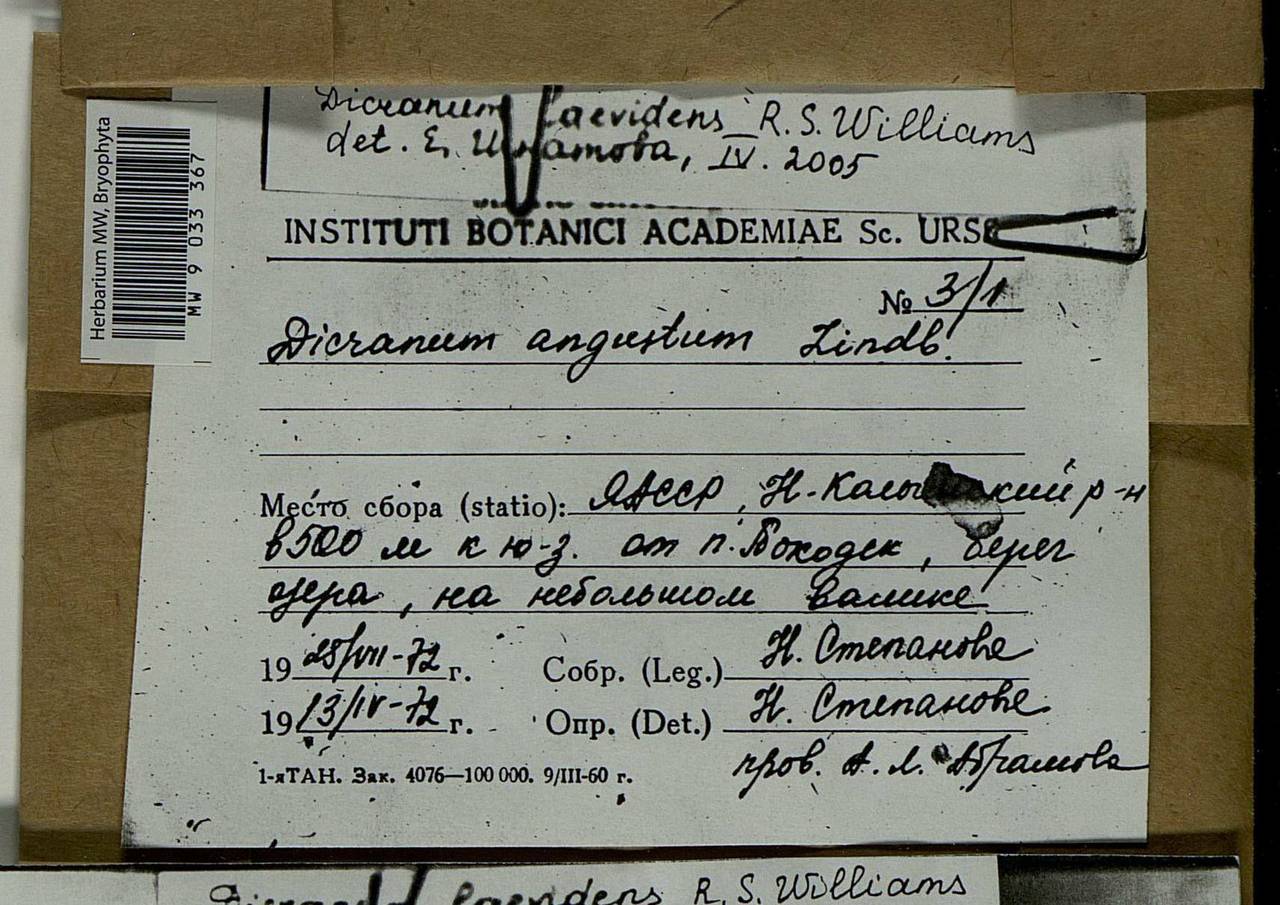 Herbarium MW, Bryophyta
MW 9 033 367
Dicranum laevidens R. S. Williams
det. Е. Игнатова, IV. 2005
INSTITUTI BOTANICI ACADEMIAE Sc. URSS
№ 3/1
Dicranum angustum Lindb.
Место сбора (statio): ЯАССР, Н-Колымский р-н
в 500 м к ю-з. от п. Походск, берег
озера, на небольшом валике
19 28/VII-72 г. Собр. (Leg.) Н. Степанова
19 13/IV-72 г. Опр. (Det.) Н. Степанова
пров. А. Л. Абрамова
1-я ТАН. Зак. 4076—100 000. 9/III-60 г.
Dicranum laevidens R. S. Williams